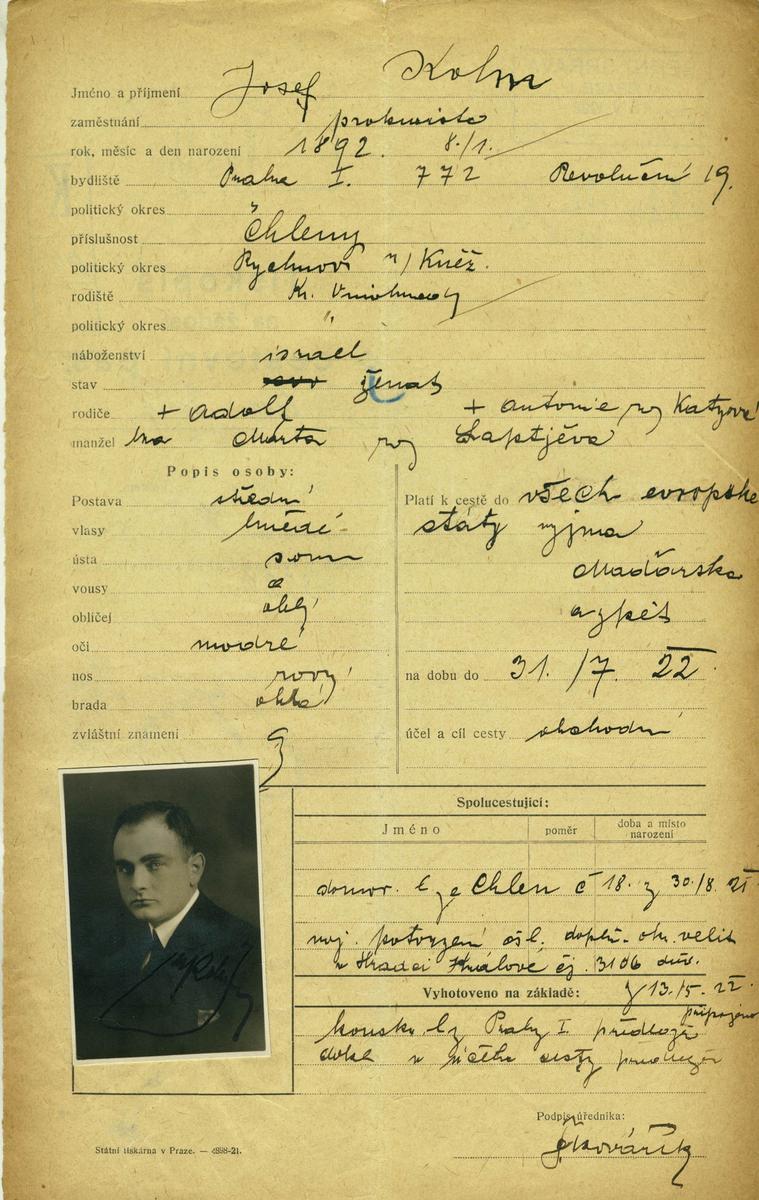 Jméno a příjmení Josef Kohn
zaměstnání prokurista
rok, měsíc a den narození 1892. 8./1.
bydliště Praha I. 772 Revoluční 19.
politický okres
příslušnost Chleny
politický okres Rychnov n/Kněž.
rodiště Kr. Vinohrady
politický okres "
náboženství israel
stav ženat
rodiče + Adolf + Antonie roz Katzová
manžel ka Marta roz Laptjěva
Popis osoby:
Postava střední
vlasy hnědé
ústa soum
vousy
obličej oblý
oči modré
nos rovný
brada oblá
zvláštní znamení
Platí k cestě do všech evropske
státy vyjma
Maďarska
a zpět
na dobu do 31. /7. 22.
účel a cíl cesty obchodní
Spolucestující:
Jméno poměr doba a místo narození
domov. l. ze Chlen č 18. z 30./8. 21
potvrzení dopln. okr. velit
v Hradci Králové čj. 3106 dův.
Vyhotoveno na základě: z 13./5. 22.
připojeno
Prahy I
cesty
Podpis úředníka:
Kovářík
Státní tiskárna v Praze. — 4898-21.